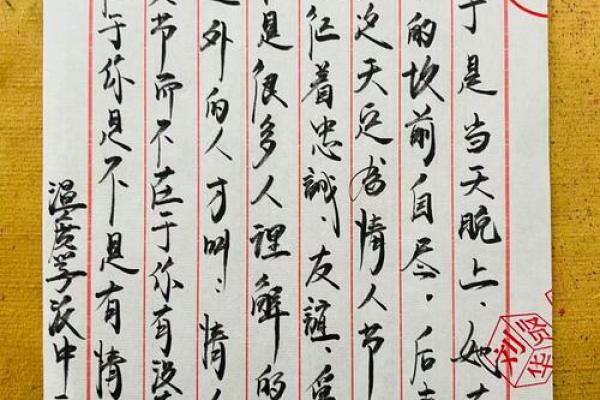 于是当天晚上、她
的坟前自尽。后
这天定为情人节
征着忠誠、友誼、
是很多人理解的
外的人才叫：情人
节而不在于你有没
于你是不是有情
温度学
中
刘贤华